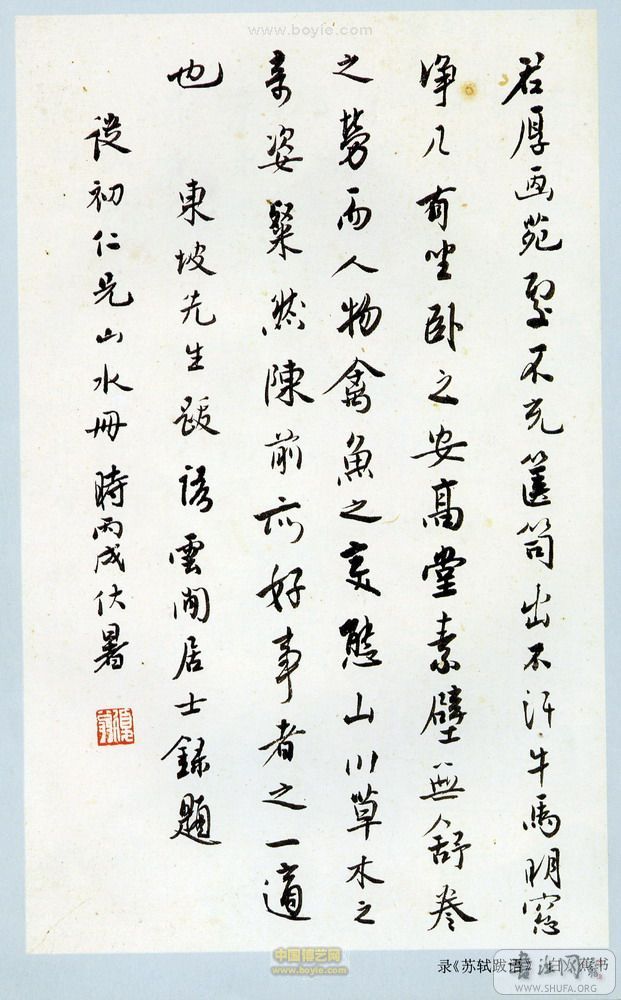 www.boyie.com
君厚画苑處不充篋笥出不汗牛馬明窓
净几有坐卧之安高堂素壁無舒卷
之勞而人物禽魚之变態山川草木之
奇姿粲然陳前亦好事者之一適
也 東坡先生跋語雲間居士録題
初仁兄山水册 時丙戌伏暑
中国博艺网
www.boyie.com
录《苏轼跋语》 白蕉书
WWW.SHUFA.ORG